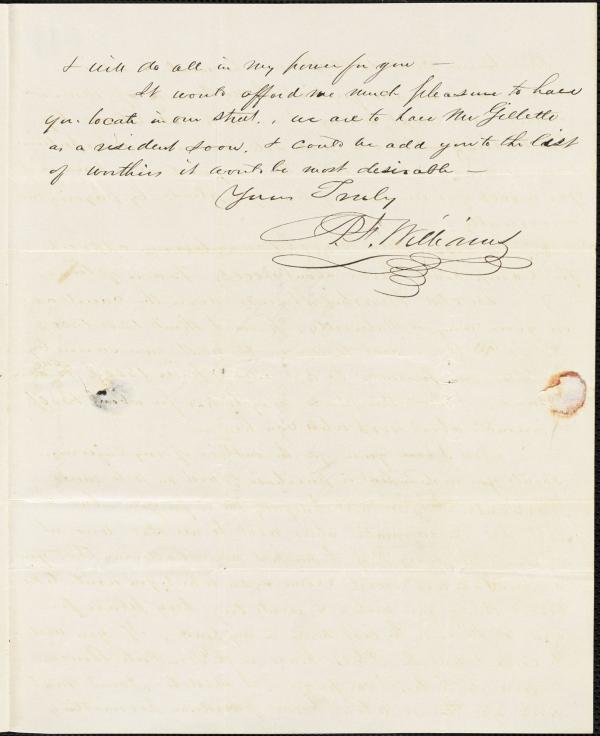 I will do all in my power for you —
It would afford me much pleasure to have
you locate in our street., we are to have Mr Gillette
as a resident soon. I could we add you to the list
of worthies it would be most desirable —
Yours Truly
F. Williams